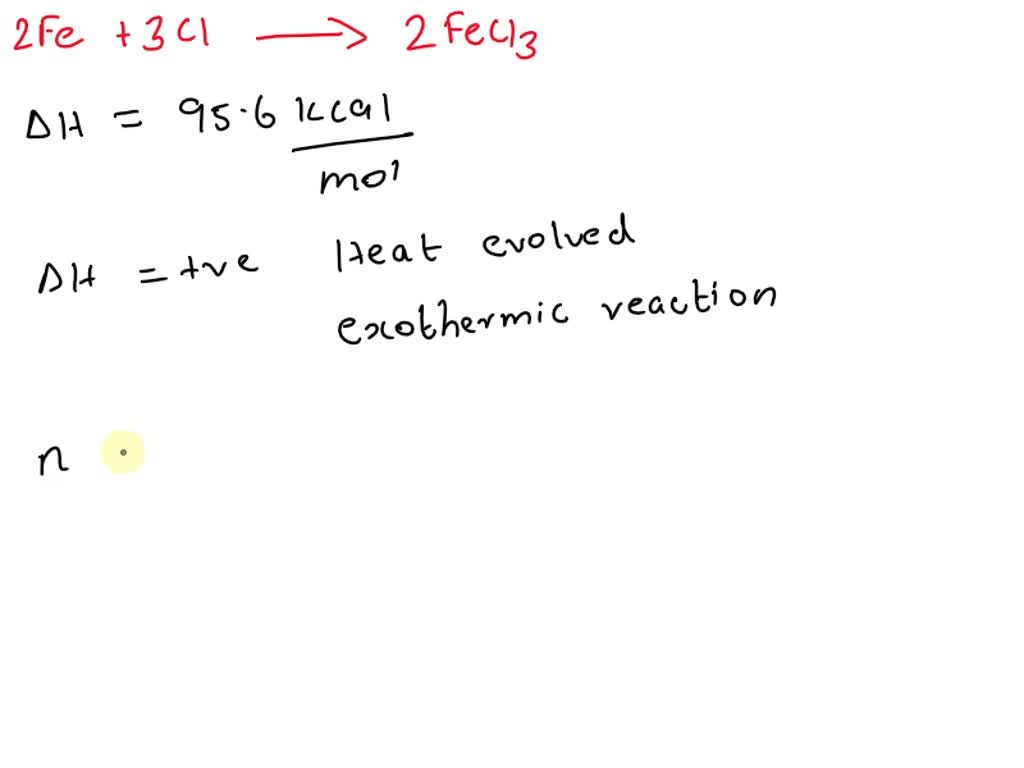 2Fe + 3Cl ⟶ 2FeCl3
ΔH = 95.6 kcal/mol
ΔH = +ve Heat evolved
exothermic reaction
n